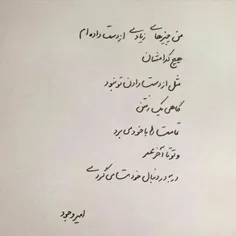 من چیزهای زیادی از دست داده‌ام
هیچ کدامشان
مثل از دست دادن تو نبود
گاهی یک رفتن
تمامت را با خود می برد
و تو تا آخر عمر
در به در دنبال خودت می گردی
امیر وجود